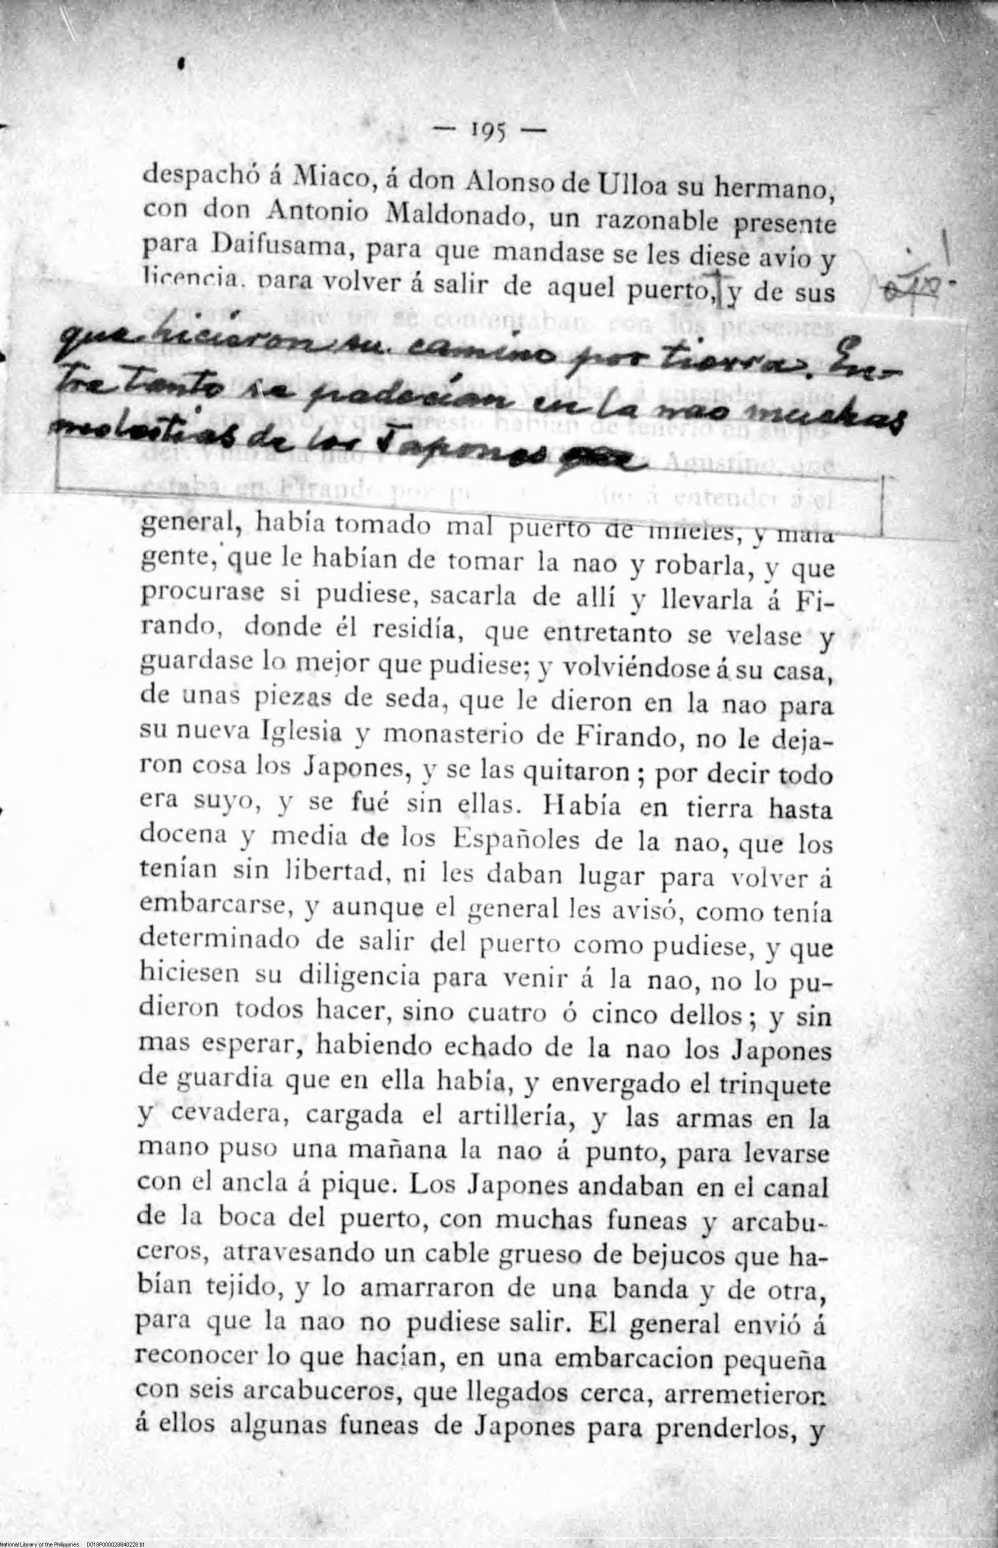 — 195 —
despachó á Miaco, á don Alonso de Ulloa su hermano,
con don Antonio Maldonado, un razonable presente
para Daifusama, para que mandase se les diese avío y
licencia, para volver á salir de aquel puerto, y de sus
que hicieron su camino por tierra. En-
tre tanto se padecían en la nao muchas
molestias de los Japones que
general, había tomado mal puerto de infieles, y mala
gente, que le habían de tomar la nao y robarla, y que
procurase si pudiese, sacarla de allí y llevarla á Fi-
rando, donde él residía, que entretanto se velase y
guardase lo mejor que pudiese; y volviéndose á su casa,
de unas piezas de seda, que le dieron en la nao para
su nueva Iglesia y monasterio de Firando, no le deja-
ron cosa los Japones, y se las quitaron; por decir todo
era suyo, y se fué sin ellas. Había en tierra hasta
docena y media de los Españoles de la nao, que los
tenían sin libertad, ni les daban lugar para volver á
embarcarse, y aunque el general les avisó, como tenía
determinado de salir del puerto como pudiese, y que
hiciesen su diligencia para venir á la nao, no lo pu-
dieron todos hacer, sino cuatro ó cinco dellos; y sin
mas esperar, habiendo echado de la nao los Japones
de guardia que en ella había, y envergado el trinquete
y cevadera, cargada el artillería, y las armas en la
mano puso una mañana la nao á punto, para levarse
con el ancla á pique. Los Japones andaban en el canal
de la boca del puerto, con muchas funeas y arcabu-
ceros, atravesando un cable grueso de bejucos que ha-
bían tejido, y lo amarraron de una banda y de otra,
para que la nao no pudiese salir. El general envió á
reconocer lo que hacían, en una embarcacion pequeña
con seis arcabuceros, que llegados cerca, arremetieron
á ellos algunas funeas de Japones para prenderlos, y
National Library of the Philippines